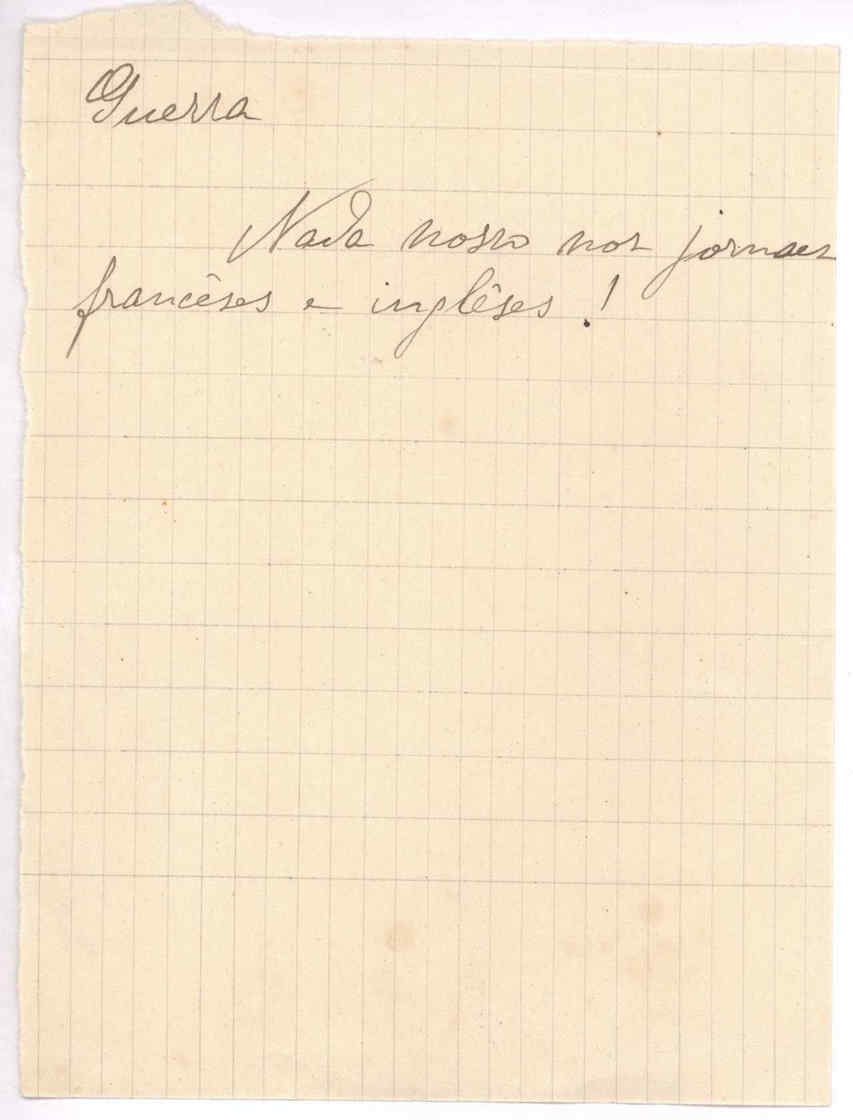 Guerra
Nada nosso nos jornaes
francêses e inglêses !